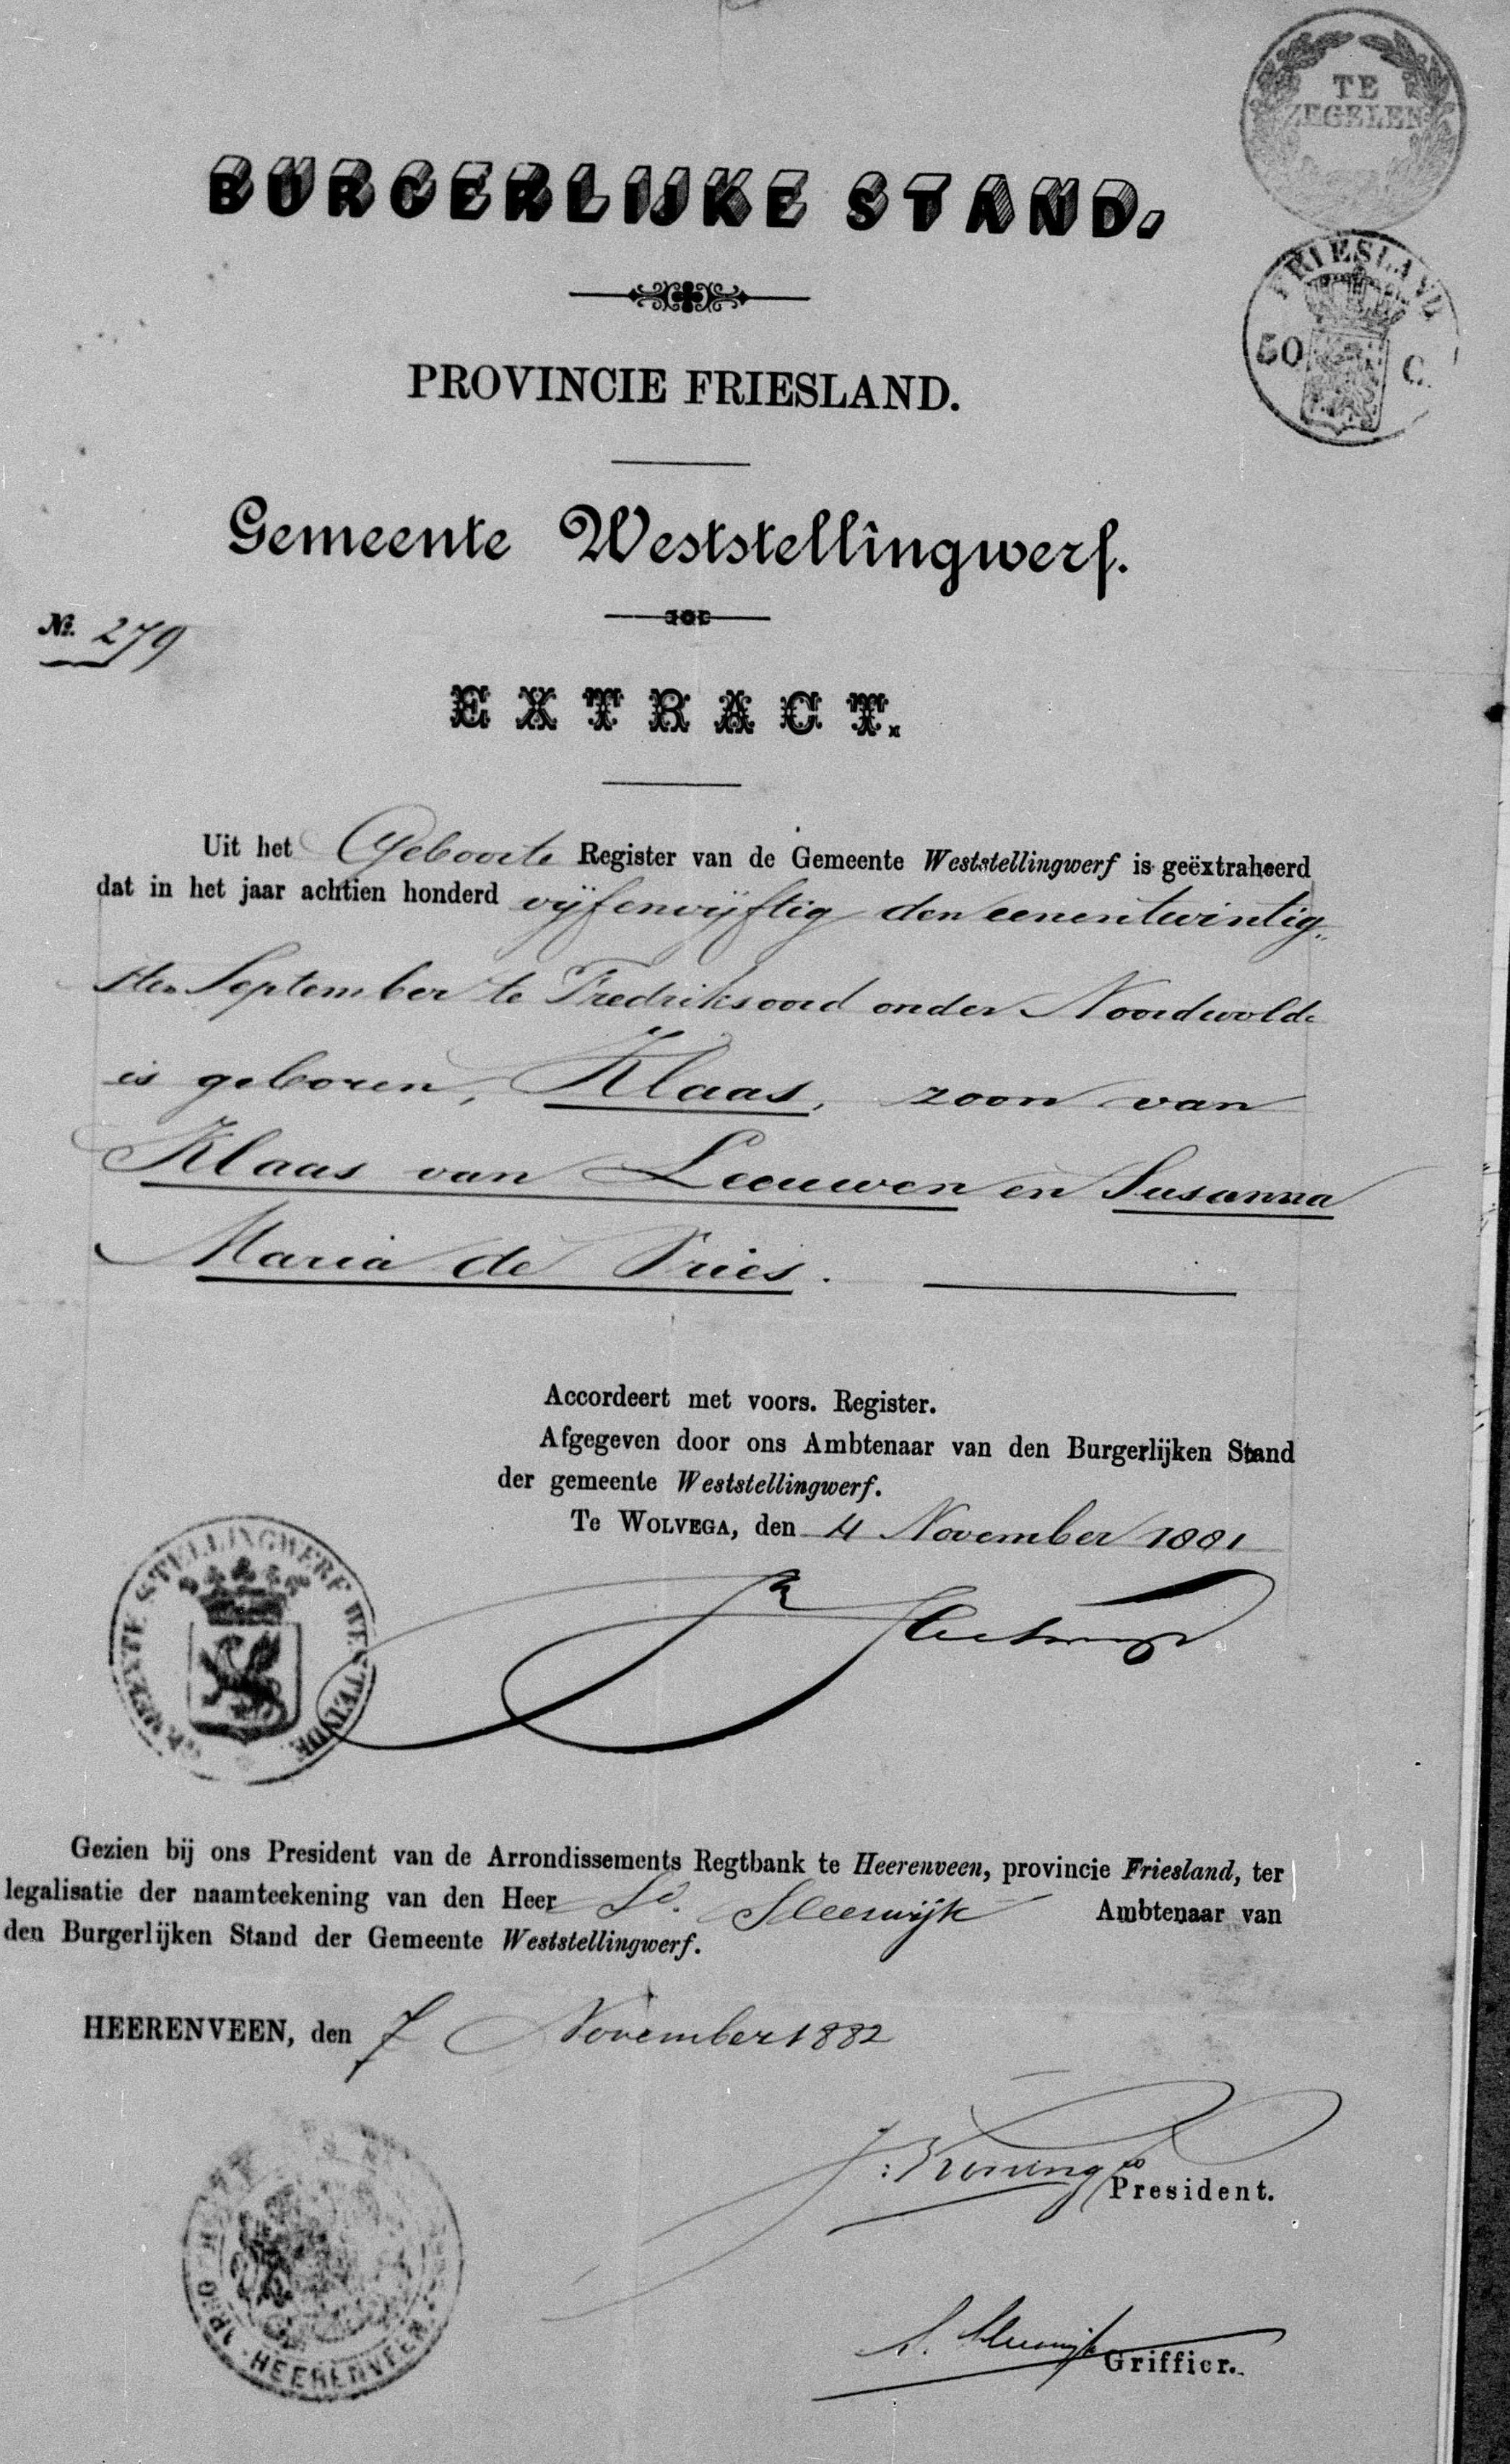 TE
ZEGELEN
BURGERLIJKE STAND.
FRIESLAND
50 C.
PROVINCIE FRIESLAND.
Gemeente Weststellingwerf.
No. 279
EXTRACT.
Uit het Geboorte Register van de Gemeente Weststellingwerf is geëxtraheerd
dat in het jaar achtien honderd vijfenvijftig den eenentwintig„
sten September te Fredriksoord onder Noordwolde
is geboren, Klaas, zoon van
Klaas van Leeuwen en Susanna
Maria de Vries.
Accordeert met voors. Register.
Afgegeven door ons Ambtenaar van den Burgerlijken Stand
der gemeente Weststellingwerf.
Te WOLVEGA, den 4 November 1881
GEMEENTE STELLINGWERF WESTEINDE.
Gezien bij ons President van de Arrondissements Regtbank te Heerenveen, provincie Friesland, ter
legalisatie der naamteekening van den Heer Sleeswijk Ambtenaar van
den Burgerlijken Stand der Gemeente Weststellingwerf.
HEERENVEEN, den 7 November 1882
President.
HEERENVEEN
Griffier.